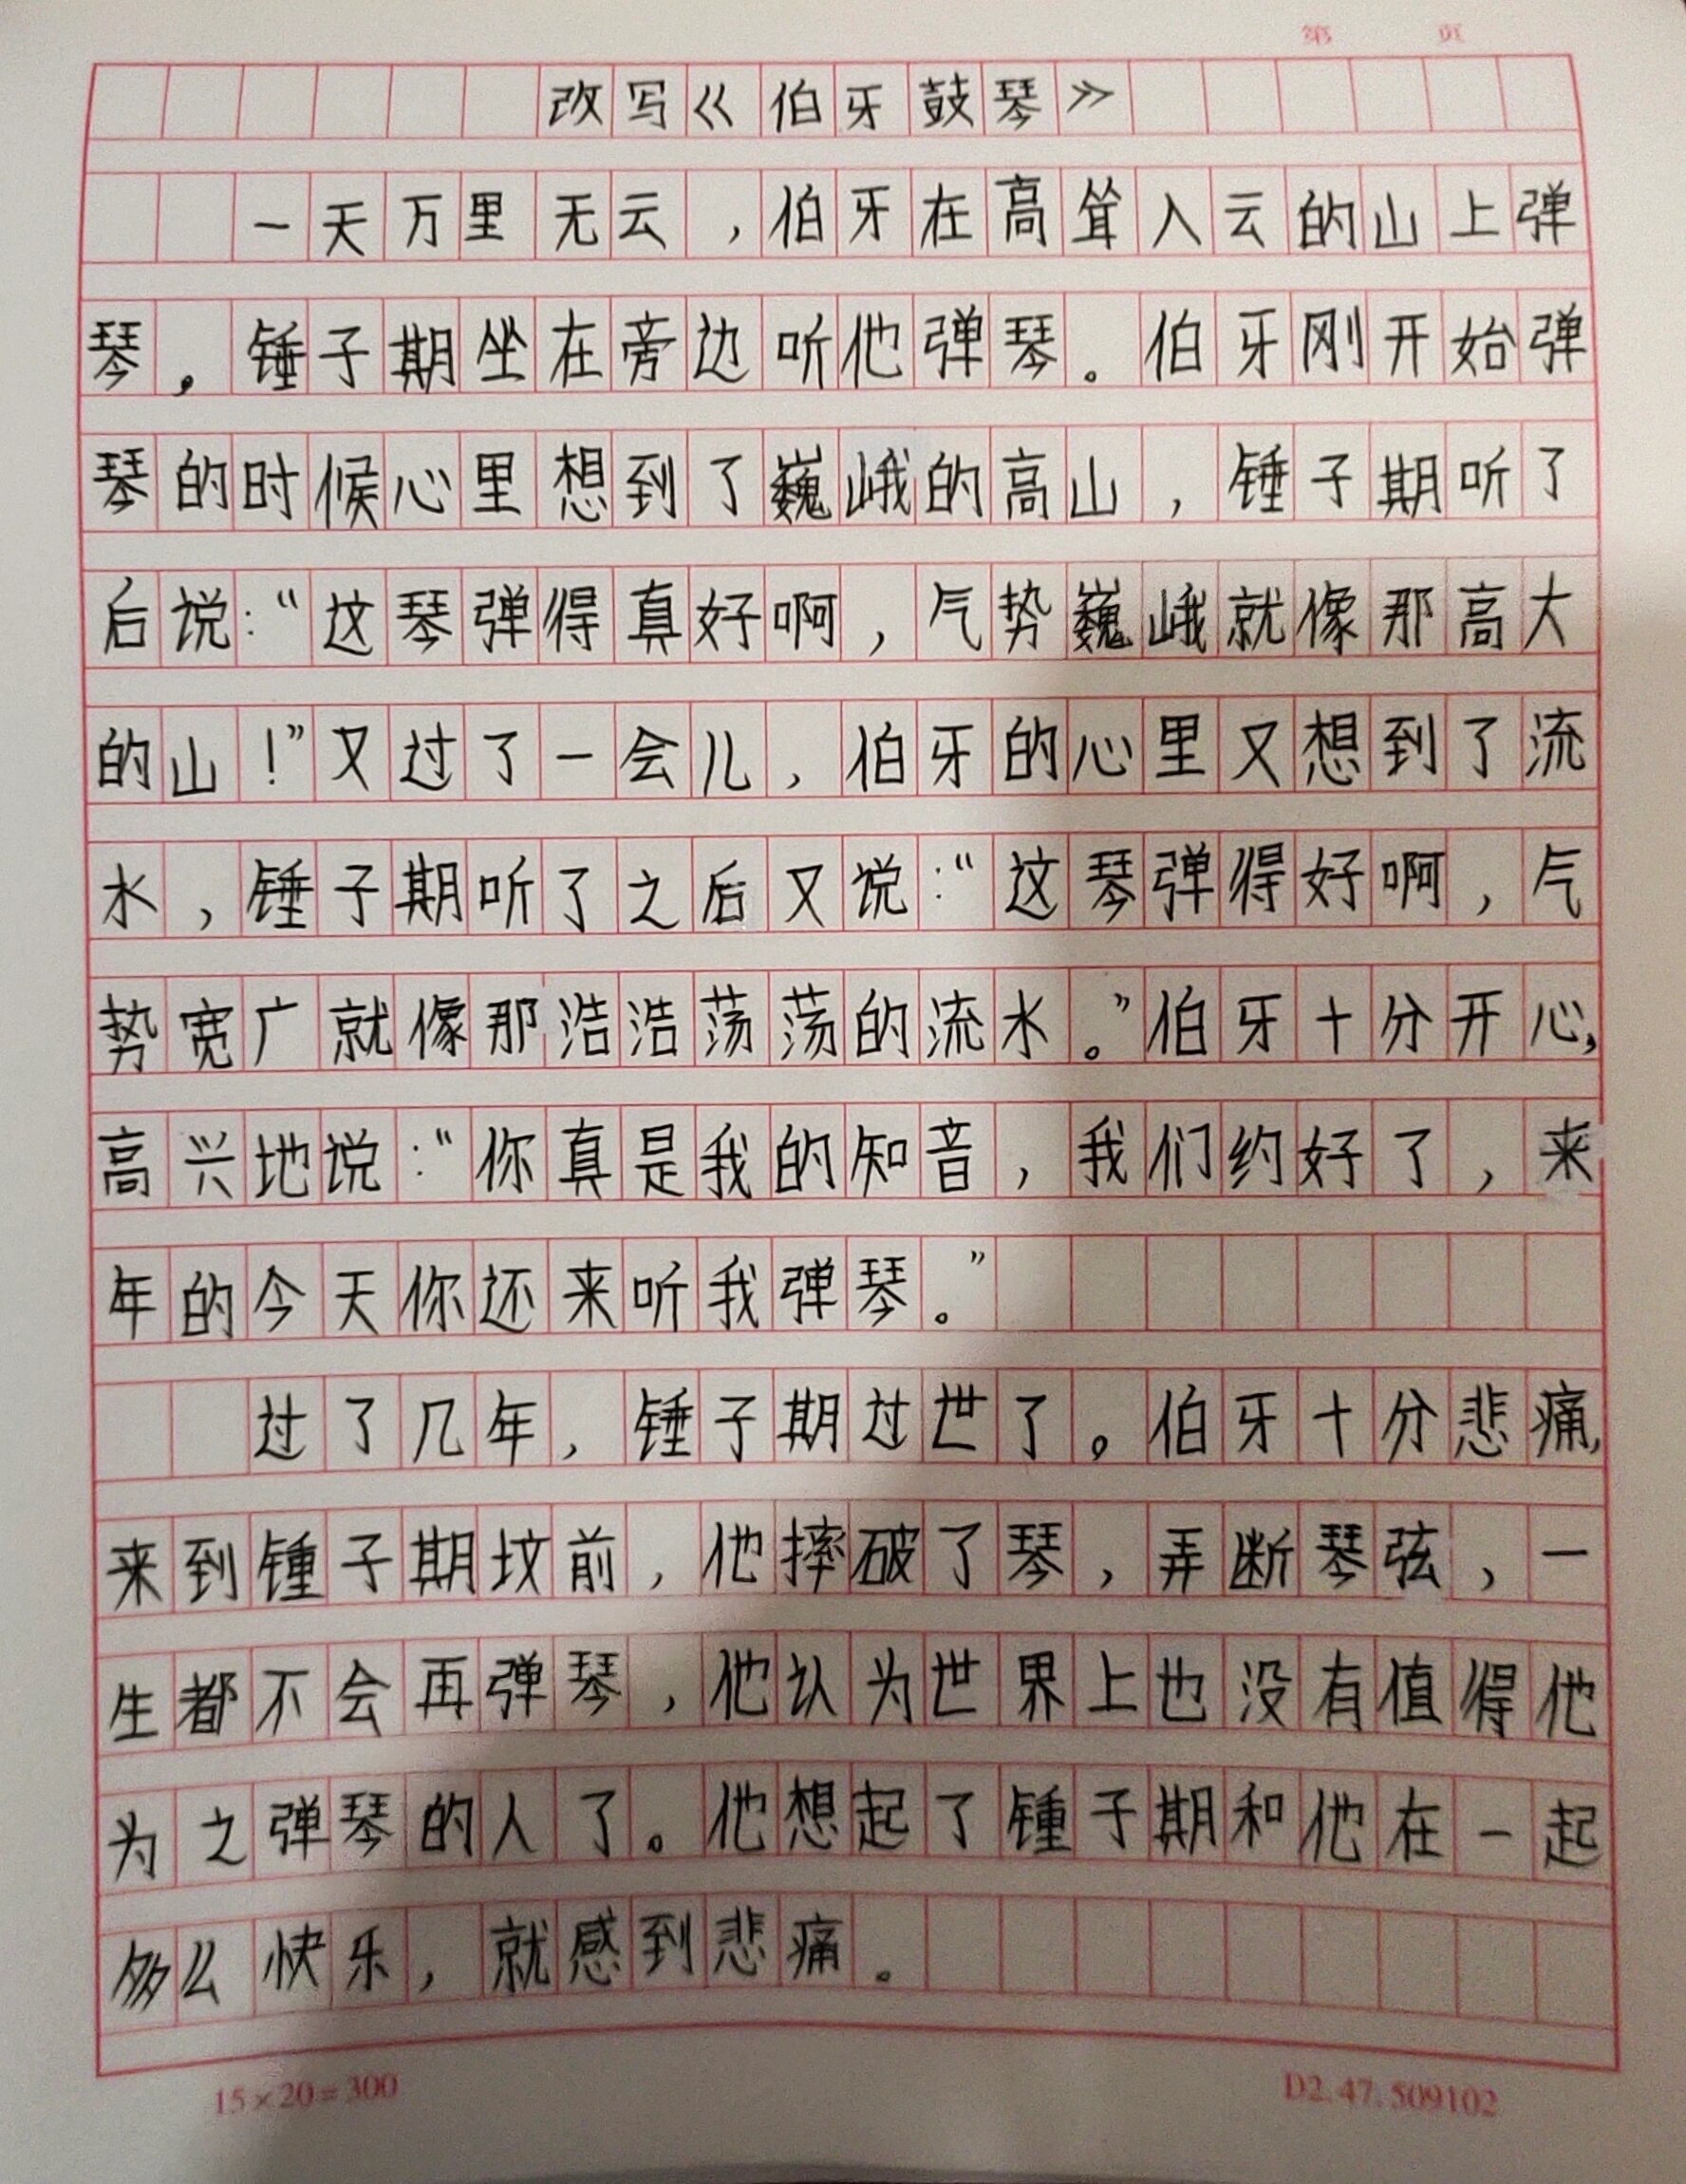 第 页
改写《伯牙鼓琴》
一天万里无云，伯牙在高耸入云的山上弹
琴，锤子期坐在旁边听他弹琴。伯牙刚开始弹
琴的时候心里想到了巍峨的高山，锤子期听了
后说：“这琴弹得真好啊，气势巍峨就像那高大
的山！”又过了一会儿，伯牙的心里又想到了流
水，锤子期听了之后又说：“这琴弹得好啊，气
势宽广就像那浩浩荡荡的流水。”伯牙十分开心，
高兴地说：“你真是我的知音，我们约好了，来
年的今天你还来听我弹琴。”
过了几年，锤子期过世了。伯牙十分悲痛，
来到锺子期坟前，他摔破了琴，弄断琴弦，一
生都不会再弹琴，他认为世界上也没有值得他
为之弹琴的人了。他想起了锺子期和他在一起
多么快乐，就感到悲痛。
15×20=300 D2.47.509102